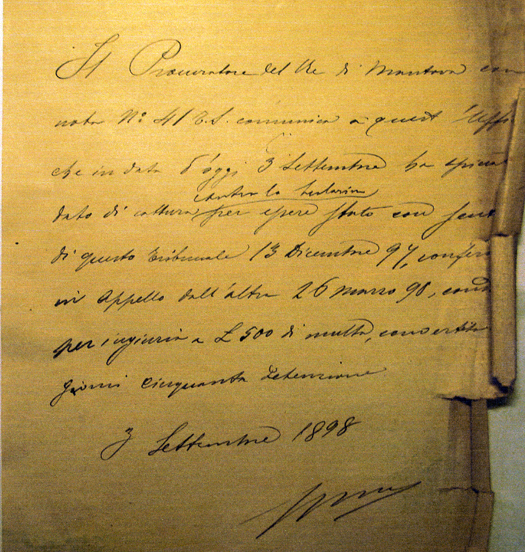 Il Procuratore del Re di Mantova con
nota No 41 C.S. comunica a quest' Uffi
che in data d'oggi 3 Settembre ha
contro la
dato di cattura per essere stato con
di questo Tribunale 13 Dicembre 97, confer
in Appello dall'altra 26 marzo 98, cond
per ingiurie a L 500 di multa, convertita
giorni cinquanta detenzione
3 Settembre 1898